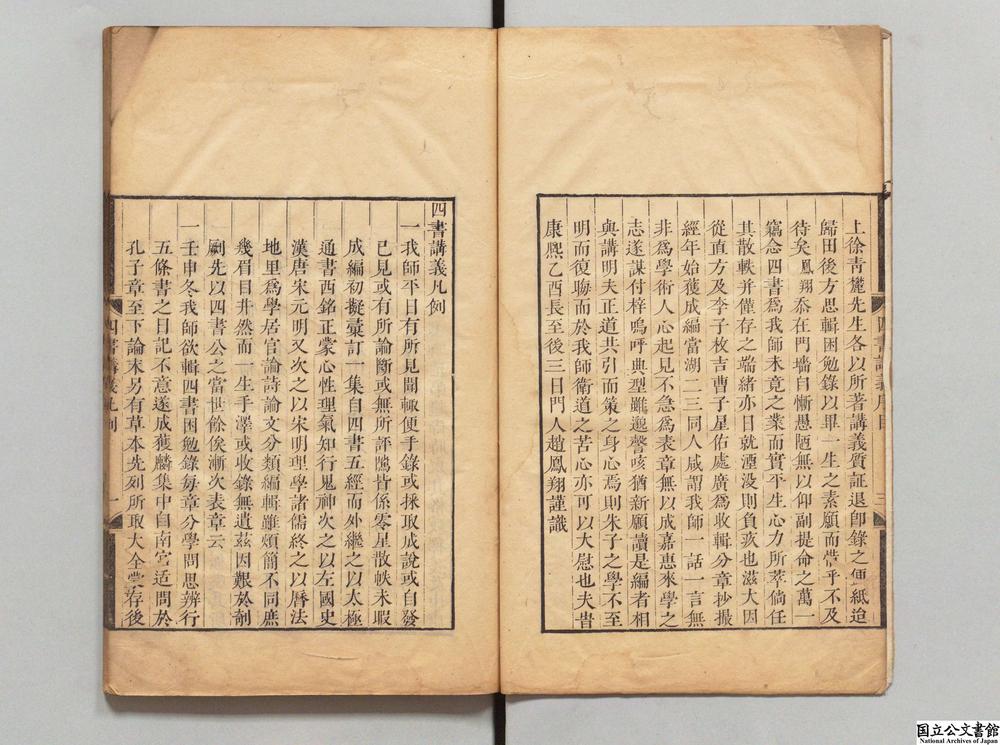 上徐青麓先生各以所著講義質証退即錄之便紙迨
歸田後方思輯困勉錄以畢一生之素願而嗟乎不及
待矣鳳翔忝在門墻自慚愚陋無以仰副提命之萬一
竊念四書爲我師未竟之業而實平生心力所萃倘任
其散軼并僅存之端緒亦日就湮没則負疚也滋大因
從直方及李子枚吉曹子星佑處廣爲收輯分章抄撮
經年始獲成編當湖二三同人咸謂我師一話一言無
非爲學術人心起見不急爲表章無以成嘉惠來學之
志遂謀付梓嗚呼典型雖邈謦咳猶新願讀是編者相
與講明夫正道共引而策之身心焉則朱子之學不至
明而復晦而於我師衛道之苦心亦可以大慰也夫旹
康熙乙酉長至後三日門人趙鳳翔謹識
三
四書講義凡例
一我師平日有所見聞輒便手錄或採取成說或自發
已見或有所論斷或無所評隲皆係零星散帙未暇
成編初擬彙訂一集自四書五經而外繼之以太極
通書西銘正蒙心性理氣知行鬼神次之以左國史
漢唐宋元明又次之以宋明理學諸儒終之以曆法
地里爲學居官論詩論文分類編輯雖煩簡不同庶
幾眉目井然而一生手澤或收錄無遺茲因艱於剞
劂先以四書公之當世餘俟漸次表章云
一壬申冬我師欲輯四書困勉錄每章分學問思辨行
五條書之日記不意遂成獲麟集中自南宮适問於
孔子章至下論末另有草本先列所取大全蒙存後
四書講義凡例
一